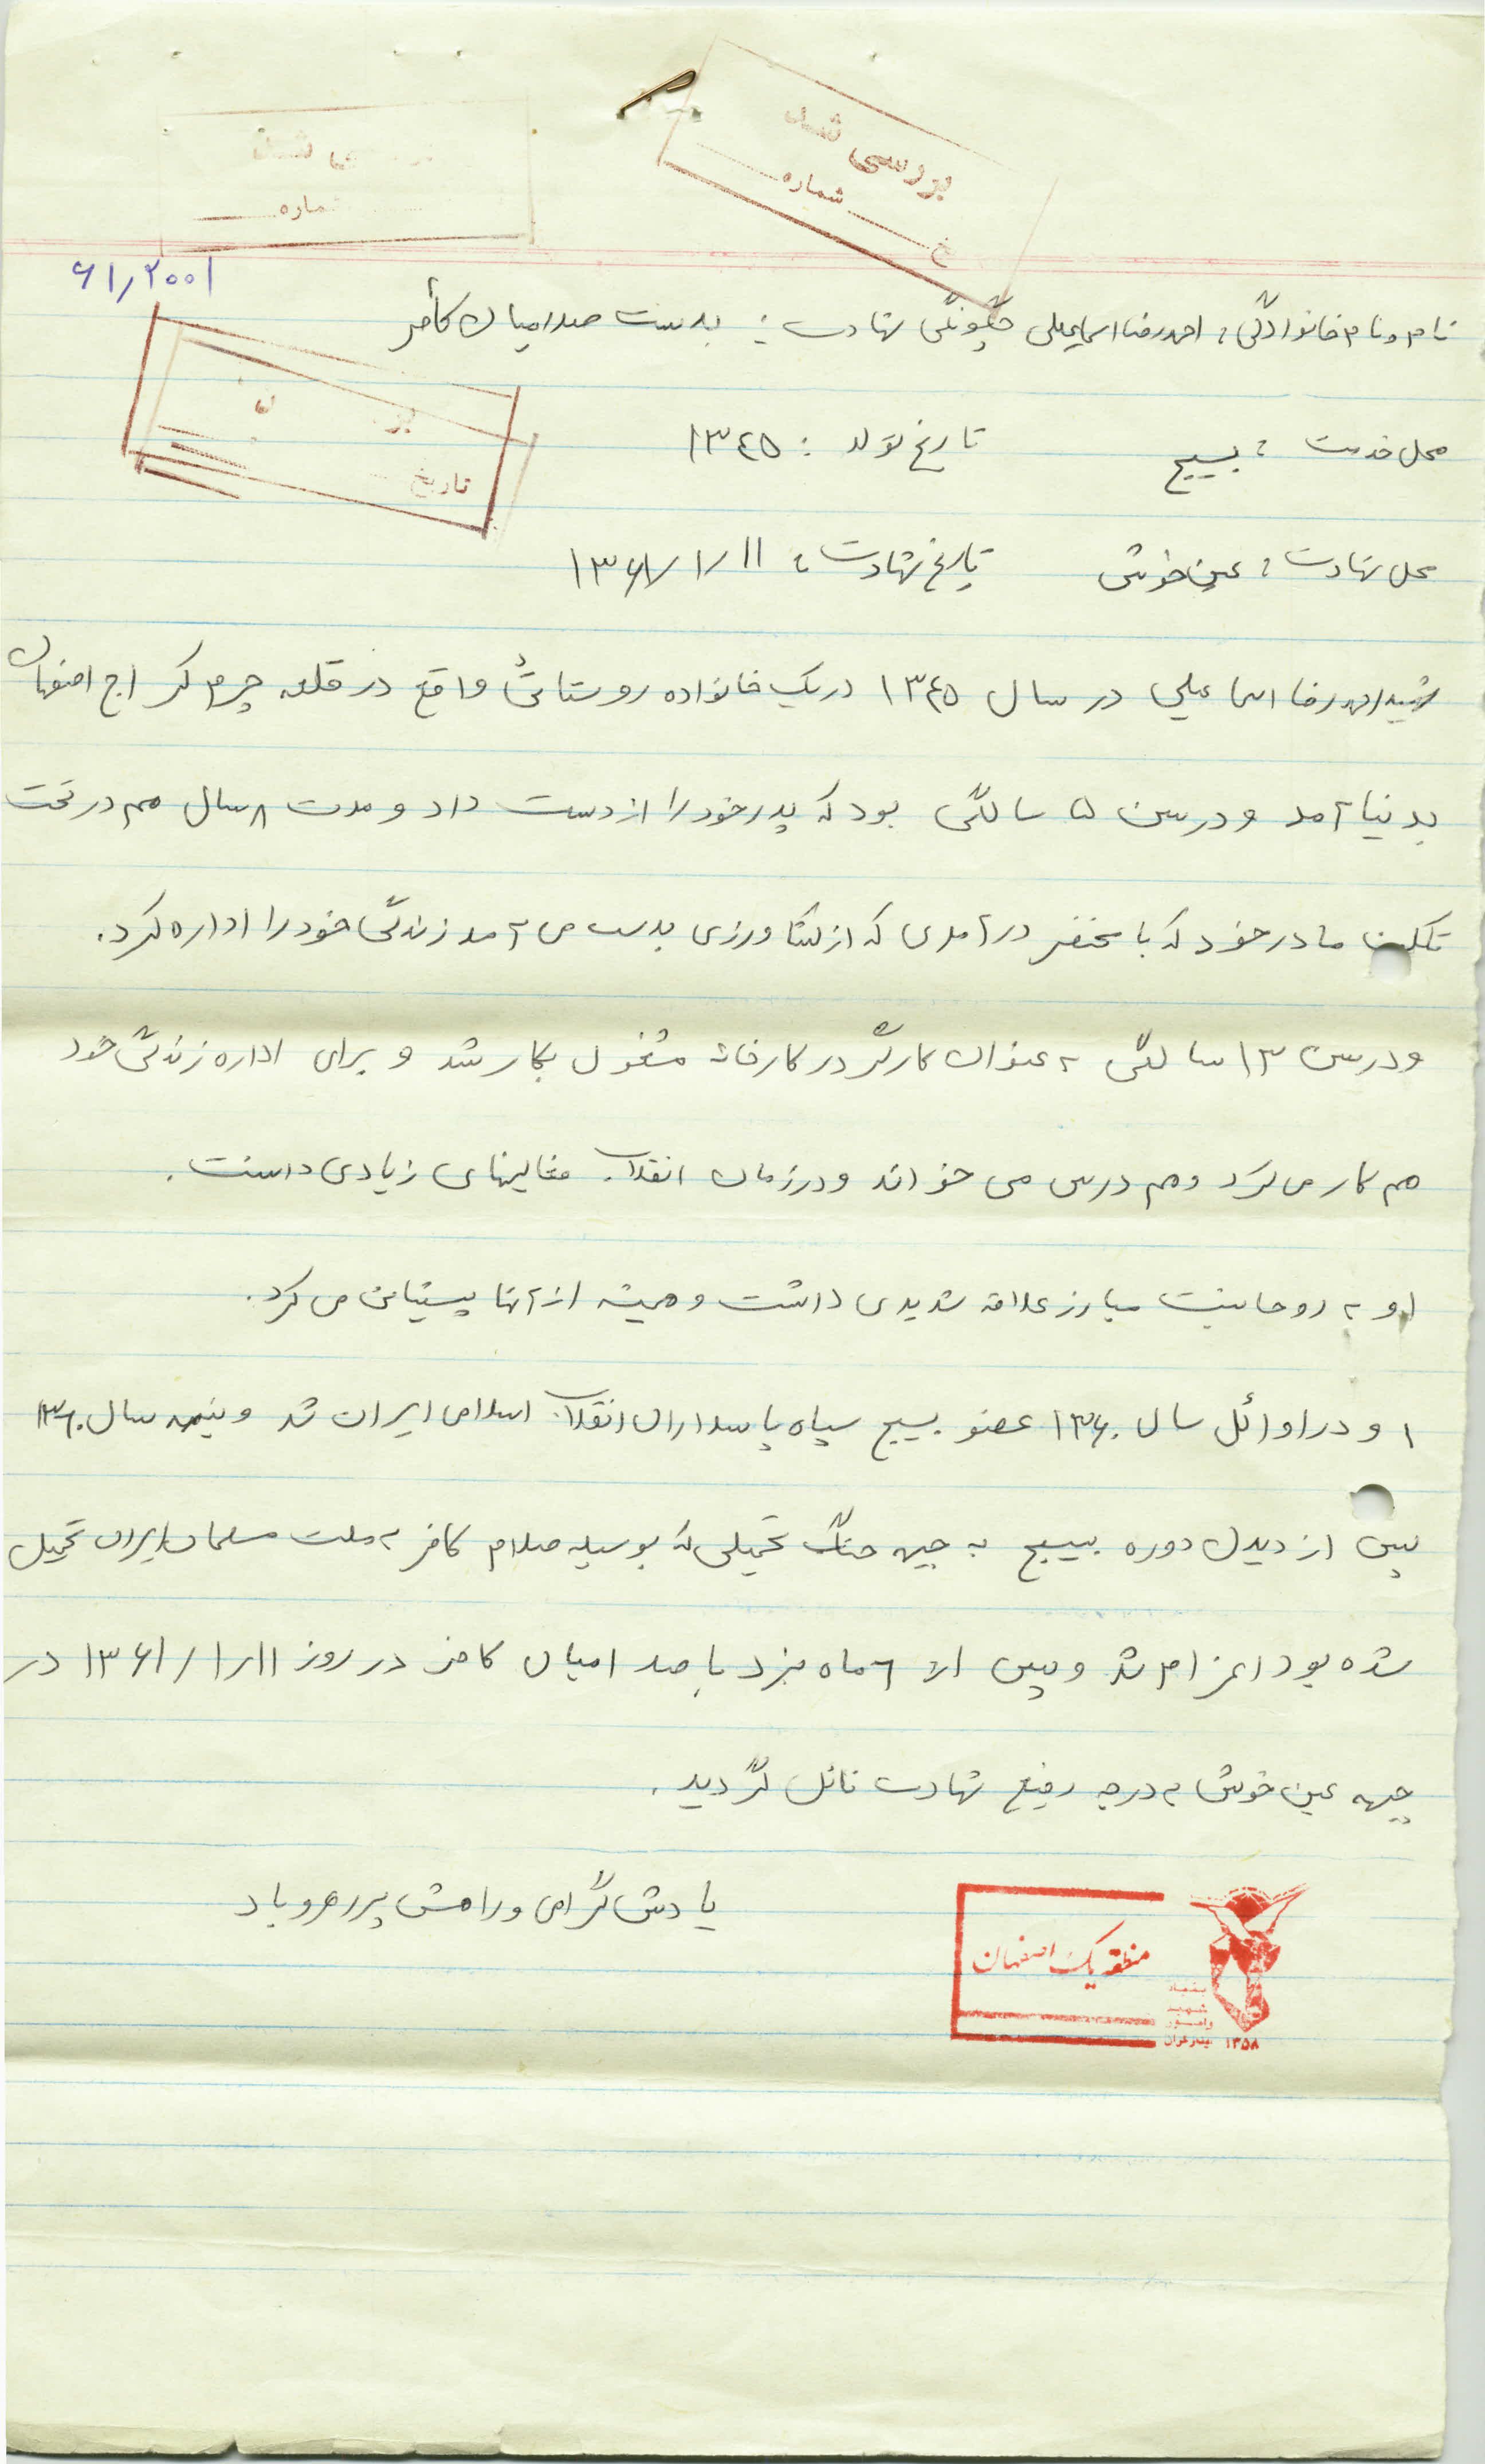 بررسی شد
شماره
شماره
۶۱٫۲۰۰۱
نام و نام خانوادگی : احمدرضا اسماعیلی چگونگی شهادت : بدست صدامیان کافر
تاریخ
محل خدمت : بسیج تاریخ تولد : ۱۳۴۵
محل شهادت : عین خوش تاریخ شهادت : ۱۳۶۱/۱/۱۱
شهید احمدرضا اسماعیلی در سال ۱۳۴۵ در یک خانواده روستائی واقع در قلعه چرم کر اج اصفهان
بدنیا آمد و در سن ۵ سالگی بود که پدر خود را از دست داد و مدت ۸ سال هم در تحت
تکلف مادر خود که با مختصر درآمدی که از کشاورزی بدست می آمد زندگی خود را اداره کرد .
و در سن ۱۳ سالگی به عنوان کارگر در کارخانه مشغول بکار شد و برای اداره زندگی خود
هم کار می کرد و هم درس می خواند و در زمان انقلاب فعالیتهای زیادی داشت .
او به روحانیت مبارز علاقه شدیدی داشت و همیشه از آنها پشتیبانی می کرد .
او در اوائل سال ۱۳۶۰ عضو بسیج سپاه پاسداران انقلاب اسلامی ایران شد و نیمه سال ۱۳۶۰
پس از دیدن دوره بسیج به جبهه جنگ تحمیلی که بوسیله صدام کافر به ملت مسلمان ایران تحمیل
شده بود اعزام شد و پس از ۶ ماه نبرد با صدامیان کافر در روز ۱۳۶۱/۱/۱۱ در
جبهه عین خوش به درجه رفیع شهادت نائل گردید .
یادش گرامی و راهش پررهرو باد
منطقه یک اصفهان
بنیاد
شهید
وامور
ایثارگران
۱۳۵۸